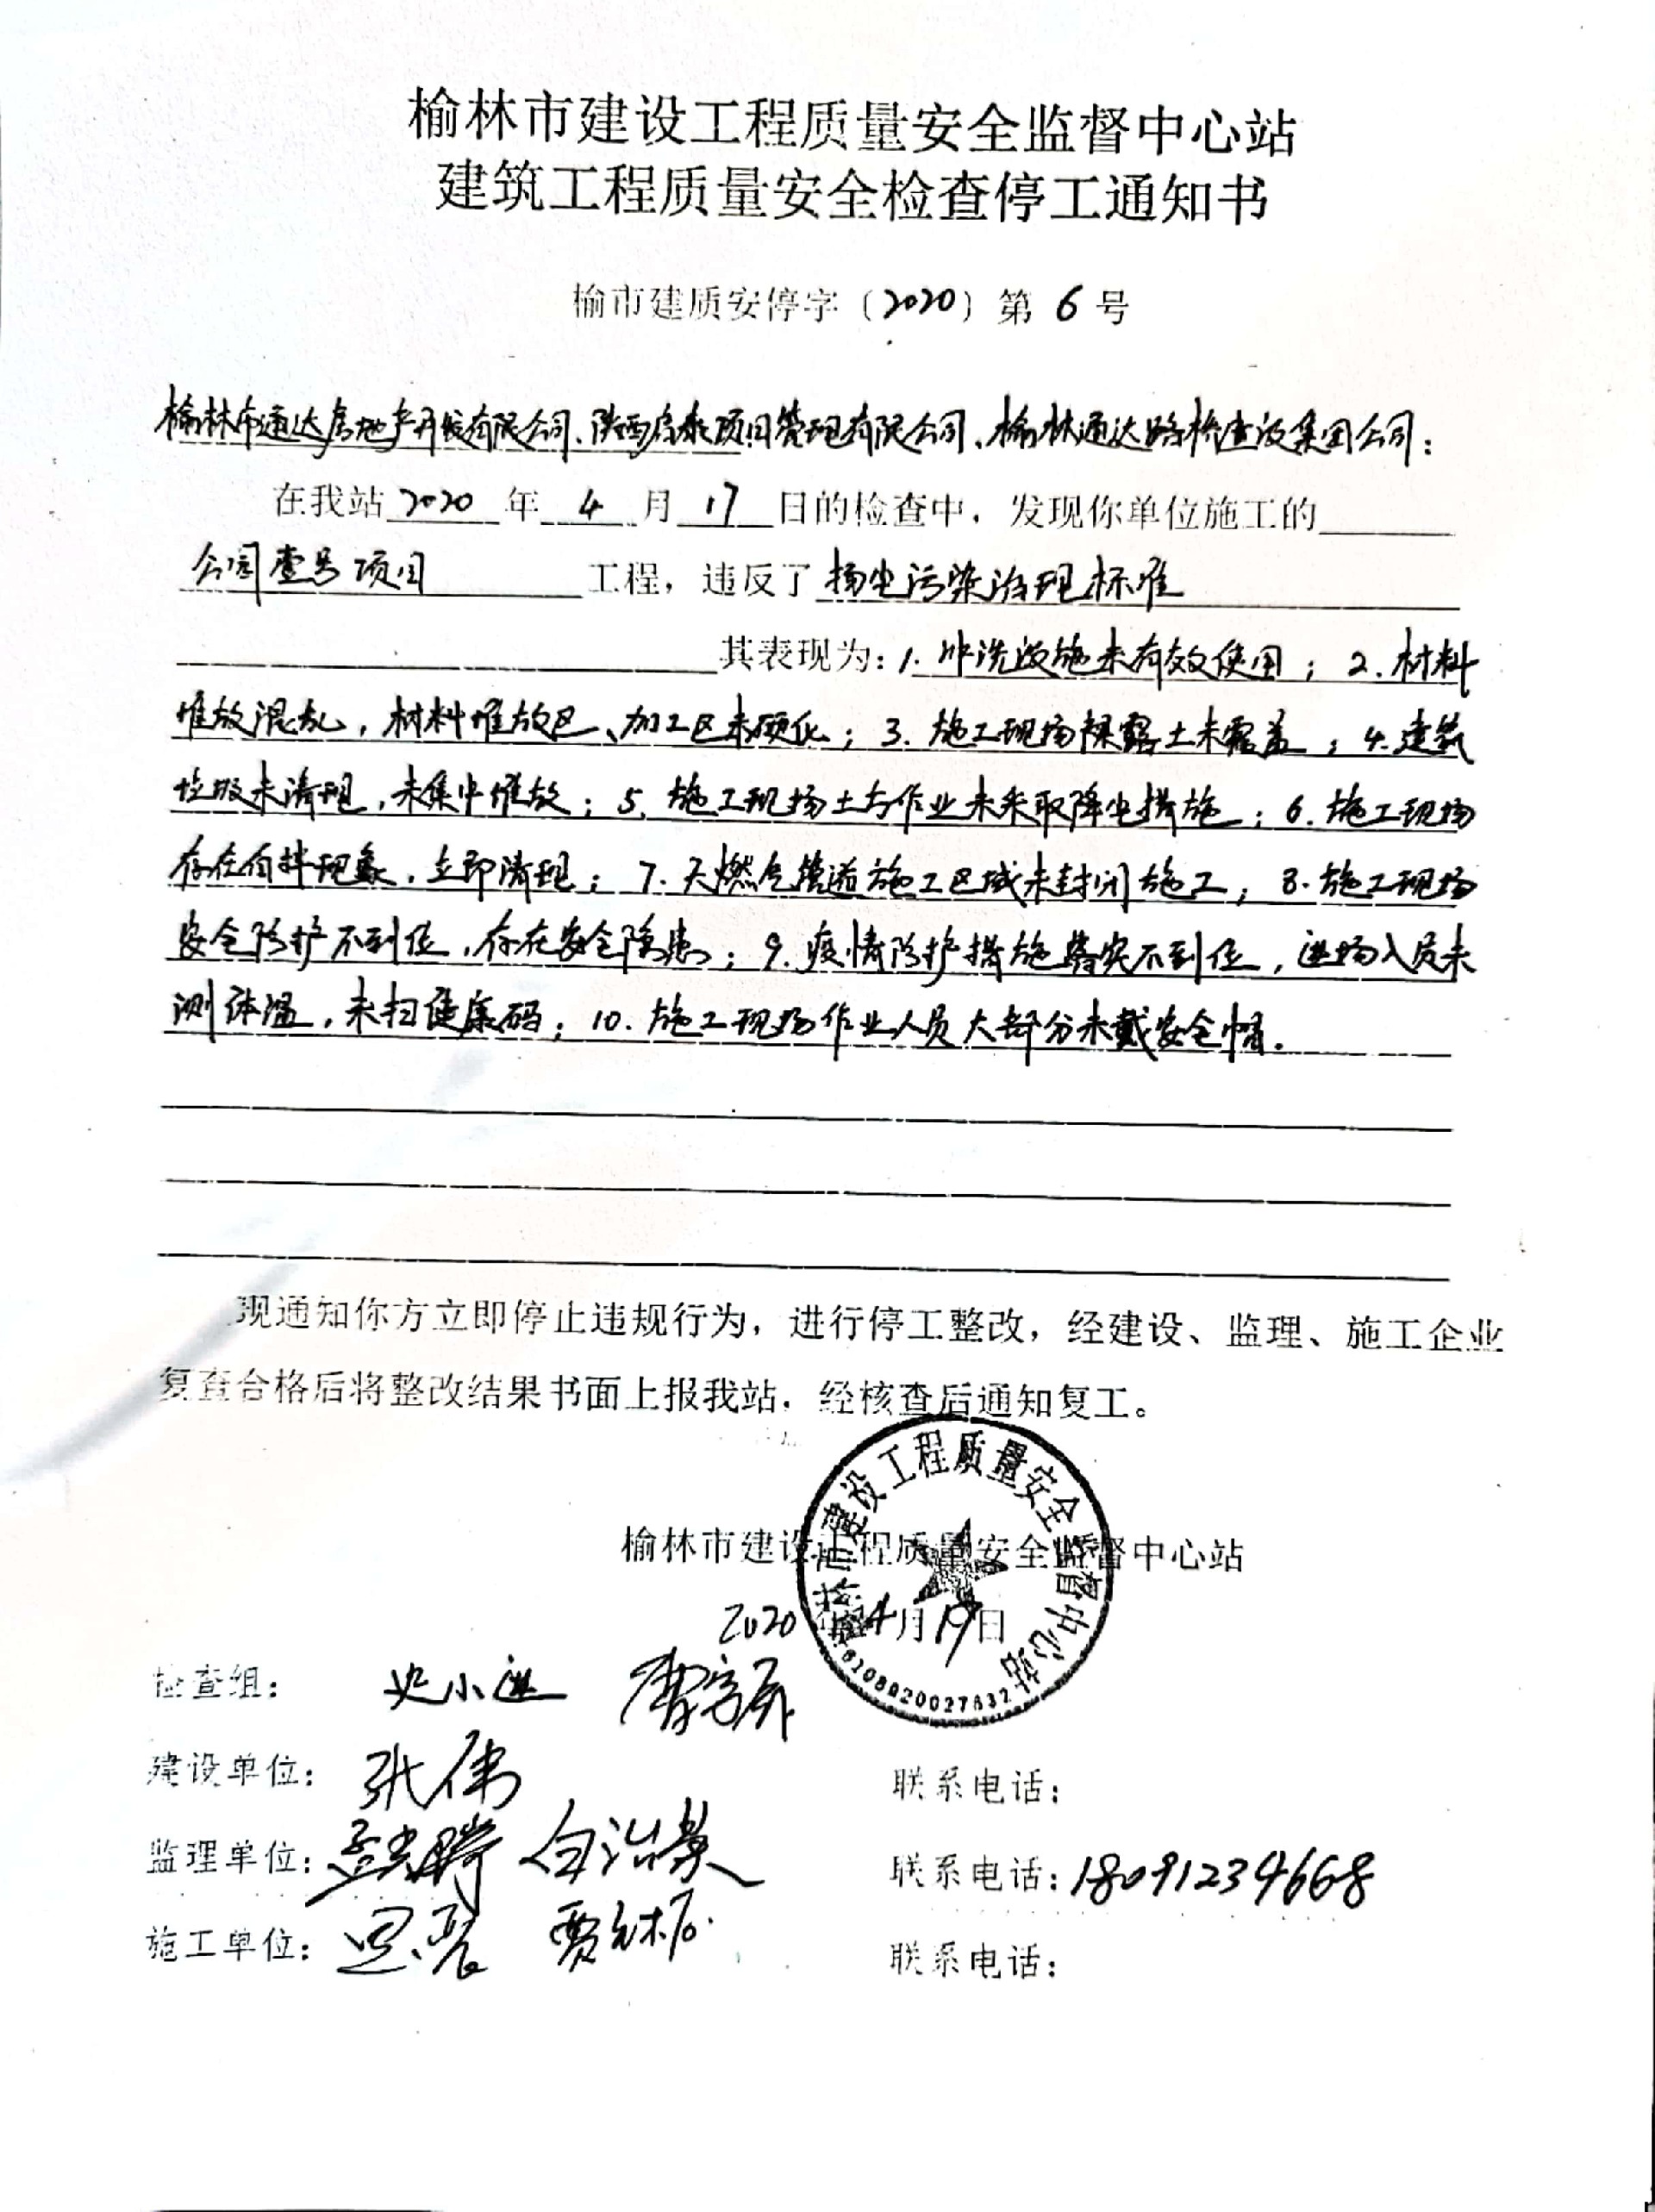 榆林市建设工程质量安全监督中心站
建筑工程质量安全检查停工通知书
榆市建质安停字〔2020〕第 6 号
榆林市通达房地产开发有限公司、陕西启泰项目管理有限公司、榆林通达路桥建设集团公司:
在我站 2020 年 4 月 17 日的检查中，发现你单位施工的
公园壹号项目 工程，违反了 扬尘污染治理标准
其表现为: 1. 冲洗设施未有效使用; 2. 材料
堆放混乱, 材料堆放区、加工区未硬化; 3. 施工现场裸露土未覆盖; 4. 建筑
垃圾未清理, 未集中堆放; 5. 施工现场土方作业未采取降尘措施; 6. 施工现场
存在自拌现象, 立即清理; 7. 天燃气管道施工区域未封闭施工; 8. 施工现场
安全防护不到位, 存在安全隐患; 9. 疫情防护措施落实不到位, 进场人员未
测体温, 未扫健康码; 10. 施工现场作业人员大部分未戴安全帽.
现通知你方立即停止违规行为，进行停工整改，经建设、监理、施工企业
复查合格后将整改结果书面上报我站，经核查后通知复工。
榆林市建设工程质量安全监督中心站
榆林市建设工程质量安全监督中心站
2020 年 4 月 17 日
6108020027632
检查组:
建设单位: 张伟 联系电话:
监理单位: 白治景 联系电话: 18091234668
施工单位: 联系电话: